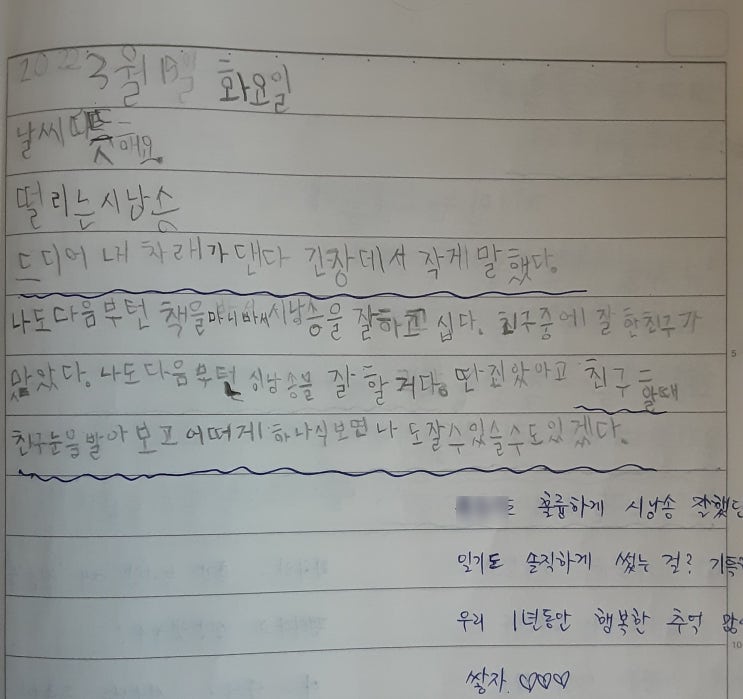 2022 3월 15일 화요일
날씨 따뜻해요.
떨리는 시남송
드디어 내 차래가 댄다 긴장데서 작게 말했다.
나도 다음부턴 책을 마니 바서 시남송을 잘하고 십다. 친구중에 잘 한친구가
맜았다. 나도 다음부턴 싱남송블 잘 할 거다. 딴 죄았아고 친구 할때
친구눈을 발아보고 어떠게 하나식보면 나도 잘수 있슬수도 있겠다.
훌륭하게 시낭송 잘했
일기도 솔직하게 썼는 걸? 기특
우리 1년동안 행복한 추억
쌓자. ♡♡♡
5
10